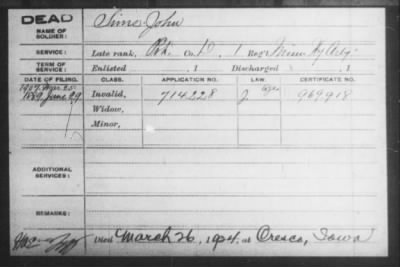 DEAD
NAME OF SOLDIER:
Sims John
SERVICE:
Late rank, Pvt. Co. D, 1 Reg't Minn Hy Arty
TERM OF SERVICE:
Enlisted , 1 Discharged , 1
DATE OF FILING. CLASS. APPLICATION NO. LAW. CERTIFICATE NO.
1907. Mar. 25 Age
1889. June 29 Invalid, 714228 2 969918
Widow,
Minor,
ADDITIONAL SERVICES:
REMARKS:
Died March 26, 1924, at Cresco, Iowa